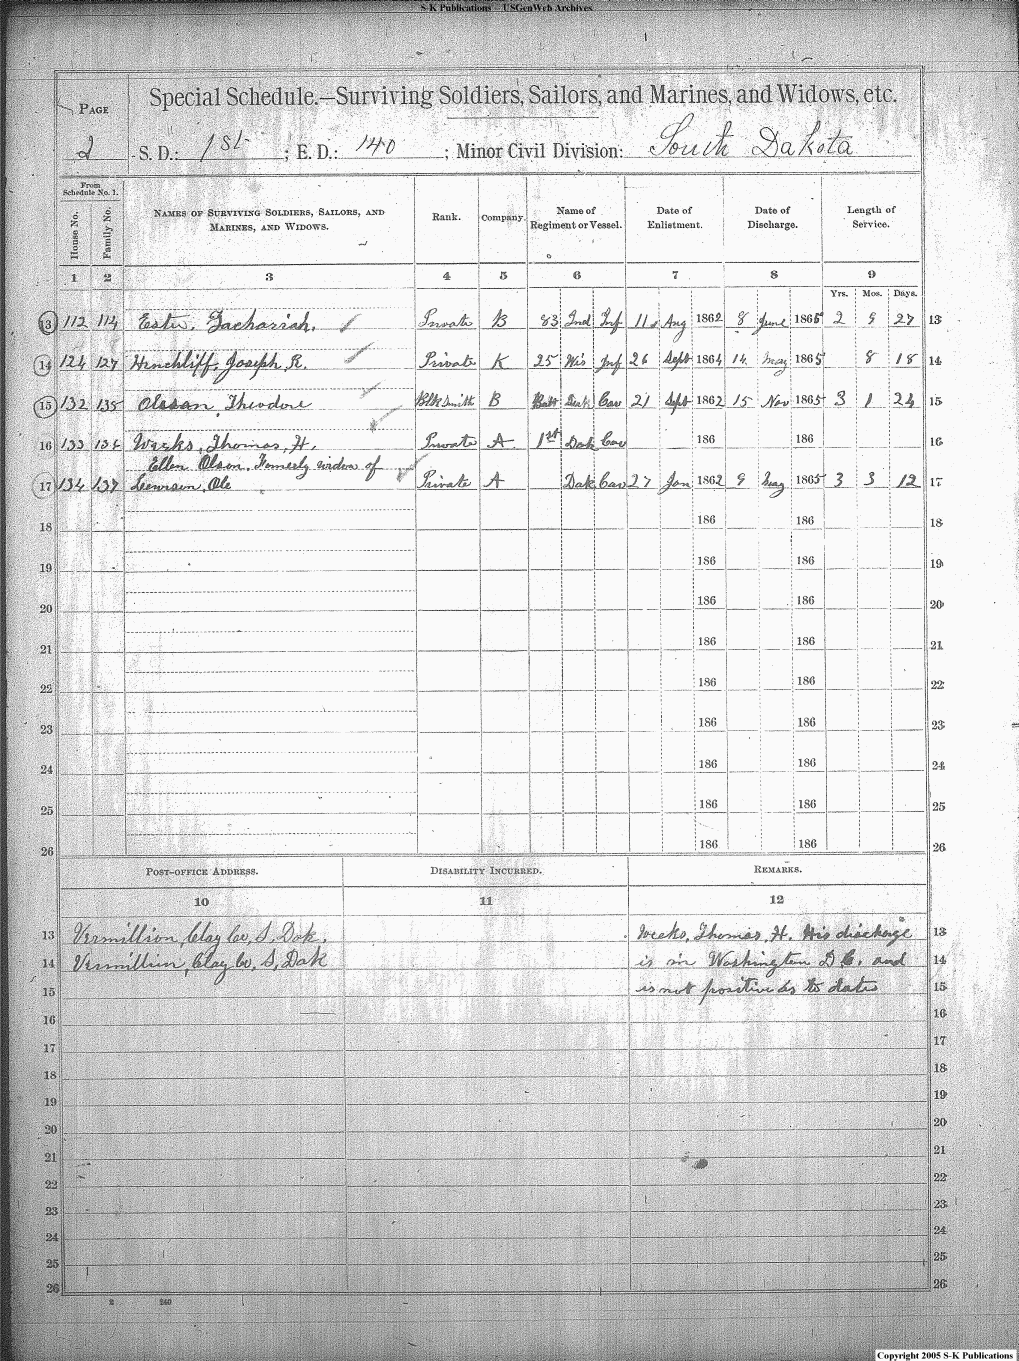 S-K Publications – USGenWeb Archives
PAGE 2
Special Schedule.—Surviving Soldiers, Sailors, and Marines, and Widows, etc.
S. D.: 1st ; E. D.: 140 ; Minor Civil Division: South Dakota
From Schedule No. 1.
House No. Family No. NAMES OF SURVIVING SOLDIERS, SAILORS, AND MARINES, AND WIDOWS. Rank. Company. Name of Regiment or Vessel. Date of Enlistment. Date of Discharge. Length of Service.
1 2 3 4 5 6 7 8 9
Yrs. Mos. Days.
13 112 114 Zachariah. Private B 83 Ind Inf 11 Aug 1862 8 June 1865 2 9 27 13
14 124 127 Hinchliff, Joseph, R. Private K 25 Wis Inf 26 Sept 1864 14 May 1865 8 18 14
15 132 135 Olssan, Theodore Blksmith B Batt Dak Cav 21 Sept 1862 15 Nov 1865 3 1 24 15
16 133 136 Weeks, Thomas, H. Private A 1st Dak Cav 186 186 16
Ellen Olson, Formerly widow of
17 134 137 Ole Private A Dak Cav 27 Jan 1862 9 May 1865 3 3 12 17
18 186 186 18
19 186 186 19
20 186 186 20
21 186 186 21
22 186 186 22
23 186 186 23
24 186 186 24
25 186 186 25
26 186 186 26
POST-OFFICE ADDRESS. DISABILITY INCURRED. REMARKS.
10 11 12
13 Vermillion, Clay Co, S. Dak. Weeks, Thomas, H. His discharge 13
14 Vermillion, Clay Co, S, Dak is in Washington D.C. and 14
15 is not positive as to dates 15
16 16
17 17
18 18
19 19
20 20
21 21
22 22
23 23
24 24
25 25
26 26
2 240
Copyright 2005 S-K Publications